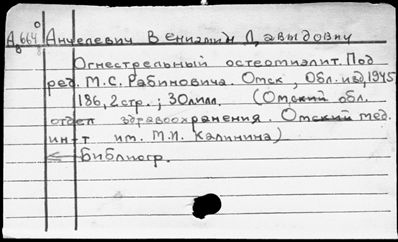 А 664 Анцелевич Вениамин Давыдович
Огнестрельный остеомиэлит. Под
ред. М.С. Рабиновича. Омск, Обл. изд, 1945
186, 2 стр.; 30 илл. (Омский обл.
отдел здравоохранения. Омский мед.
ин-т им. М.И. Калинина)
Библиогр.